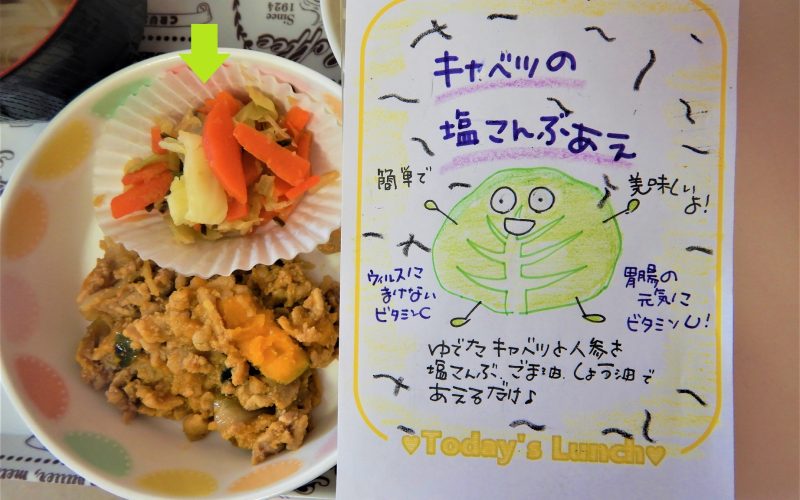 Since
1924
Coffee
キャベツの
塩こんぶあえ
簡単で
美味しい
よ!
ウィルスに
まけない
ビタミンC
胃腸の
元気に
ビタミンU!
ゆでたキャベツと人参を
塩こんぶ、ごま油、しょう油で
あえるだけ♪
♥Today's Lunch♥